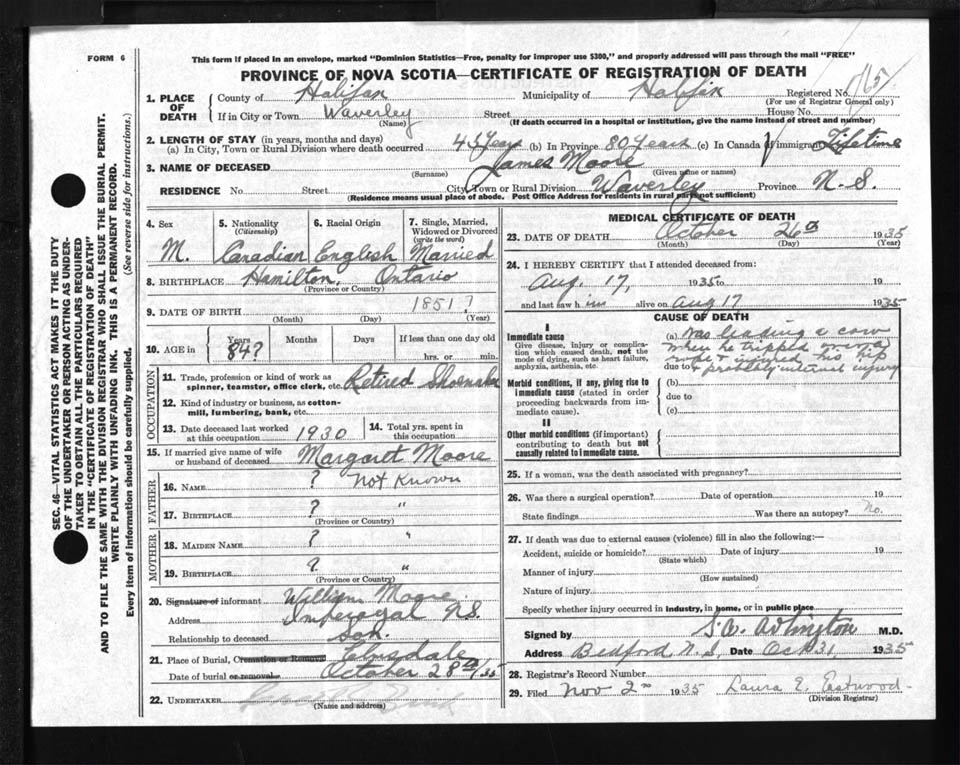 FORM 6
This form if placed in an envelope, marked "Dominion Statistics—Free, penalty for improper use $300," and properly addressed will pass through the mail "FREE"
PROVINCE OF NOVA SCOTIA—CERTIFICATE OF REGISTRATION OF DEATH
SEC. 46—VITAL STATISTICS ACT MAKES IT THE DUTY
OF THE UNDERTAKER OR PERSON ACTING AS UNDER-
TAKER TO OBTAIN ALL THE PARTICULARS REQUIRED
IN THE "CERTIFICATE OF REGISTRATION OF DEATH"
AND TO FILE THE SAME WITH THE DIVISION REGISTRAR WHO SHALL ISSUE THE BURIAL PERMIT.
WRITE PLAINLY WITH UNFADING INK. THIS IS A PERMANENT RECORD.
Every item of information should be carefully supplied. (See reverse side for instructions.)
1. PLACE OF DEATH County of Halifax Municipality of Halifax Registered No.
(For use of Registrar General only)
If in City or Town Waverley Street House No.
(Name) (If death occurred in a hospital or institution, give the name instead of street and number)
2. LENGTH OF STAY (in years, months and days)
(a) In City, Town or Rural Division where death occurred 45 Years (b) In Province 80 Years (c) In Canada if immigrant Lifetime
3. NAME OF DECEASED James Moore
(Surname) (Given name or names)
RESIDENCE No. Street City, Town or Rural Division Waverley Province N.S.
(Residence means usual place of abode. Post Office Address for residents in rural parts not sufficient)
4. Sex 5. Nationality (Citizenship) 6. Racial Origin 7. Single, Married, Widowed or Divorced (write the word)
M. Canadian English Married
8. BIRTHPLACE Hamilton, Ontario
(Province or Country)
9. DATE OF BIRTH 1851?
(Month) (Day) (Year)
10. AGE in Years Months Days If less than one day old
84? hrs. or min.
OCCUPATION
11. Trade, profession or kind of work as spinner, teamster, office clerk, etc. Retired Shoemaker
12. Kind of industry or business, as cotton-mill, lumbering, bank, etc.
13. Date deceased last worked at this occupation 1930 14. Total yrs. spent in this occupation
15. If married give name of wife or husband of deceased Margaret Moore
FATHER
16. NAME ? Not Known
17. BIRTHPLACE ? "
(Province or Country)
MOTHER
18. MAIDEN NAME ? "
19. BIRTHPLACE ? "
(Province or Country)
20. Signature of informant William Moore
Address Imperoyal N.S.
Relationship to deceased Son.
21. Place of Burial, Cremation or Removal Elmsdale
Date of burial or removal October 28th/35
22. UNDERTAKER
(Name and address)
MEDICAL CERTIFICATE OF DEATH
23. DATE OF DEATH October 26th 1935
(Month) (Day) (Year)
24. I HEREBY CERTIFY that I attended deceased from:
Aug. 17, 1935 to 19
and last saw him alive on Aug 17 1935
CAUSE OF DEATH
I
Immediate cause
Give disease, injury or complica-
tion which caused death, not the
mode of dying, such as heart failure,
asphyxia, asthenia, etc.
(a) Was leading a cow
when he tripped over
due to rope & injured his hip
& probably internal injury
Morbid conditions, if any, giving rise to
immediate cause (stated in order
proceeding backwards from im-
mediate cause).
(b)
due to
(c)
II
Other morbid conditions (if important)
contributing to death but not
causally related to immediate cause.
25. If a woman, was the death associated with pregnancy?
26. Was there a surgical operation? Date of operation 19
State findings Was there an autopsy? No.
27. If death was due to external causes (violence) fill in also the following:—
Accident, suicide or homicide? Date of injury 19
(State which)
Manner of injury
(How sustained)
Nature of injury
Specify whether injury occurred in industry, in home, or in public place
Signed by M.D.
Address Bedford, N.S. Date Oct 31, 1935
28. Registrar's Record Number
29. Filed Nov 2nd 1935 Laura E. Eastwood
(Division Registrar)